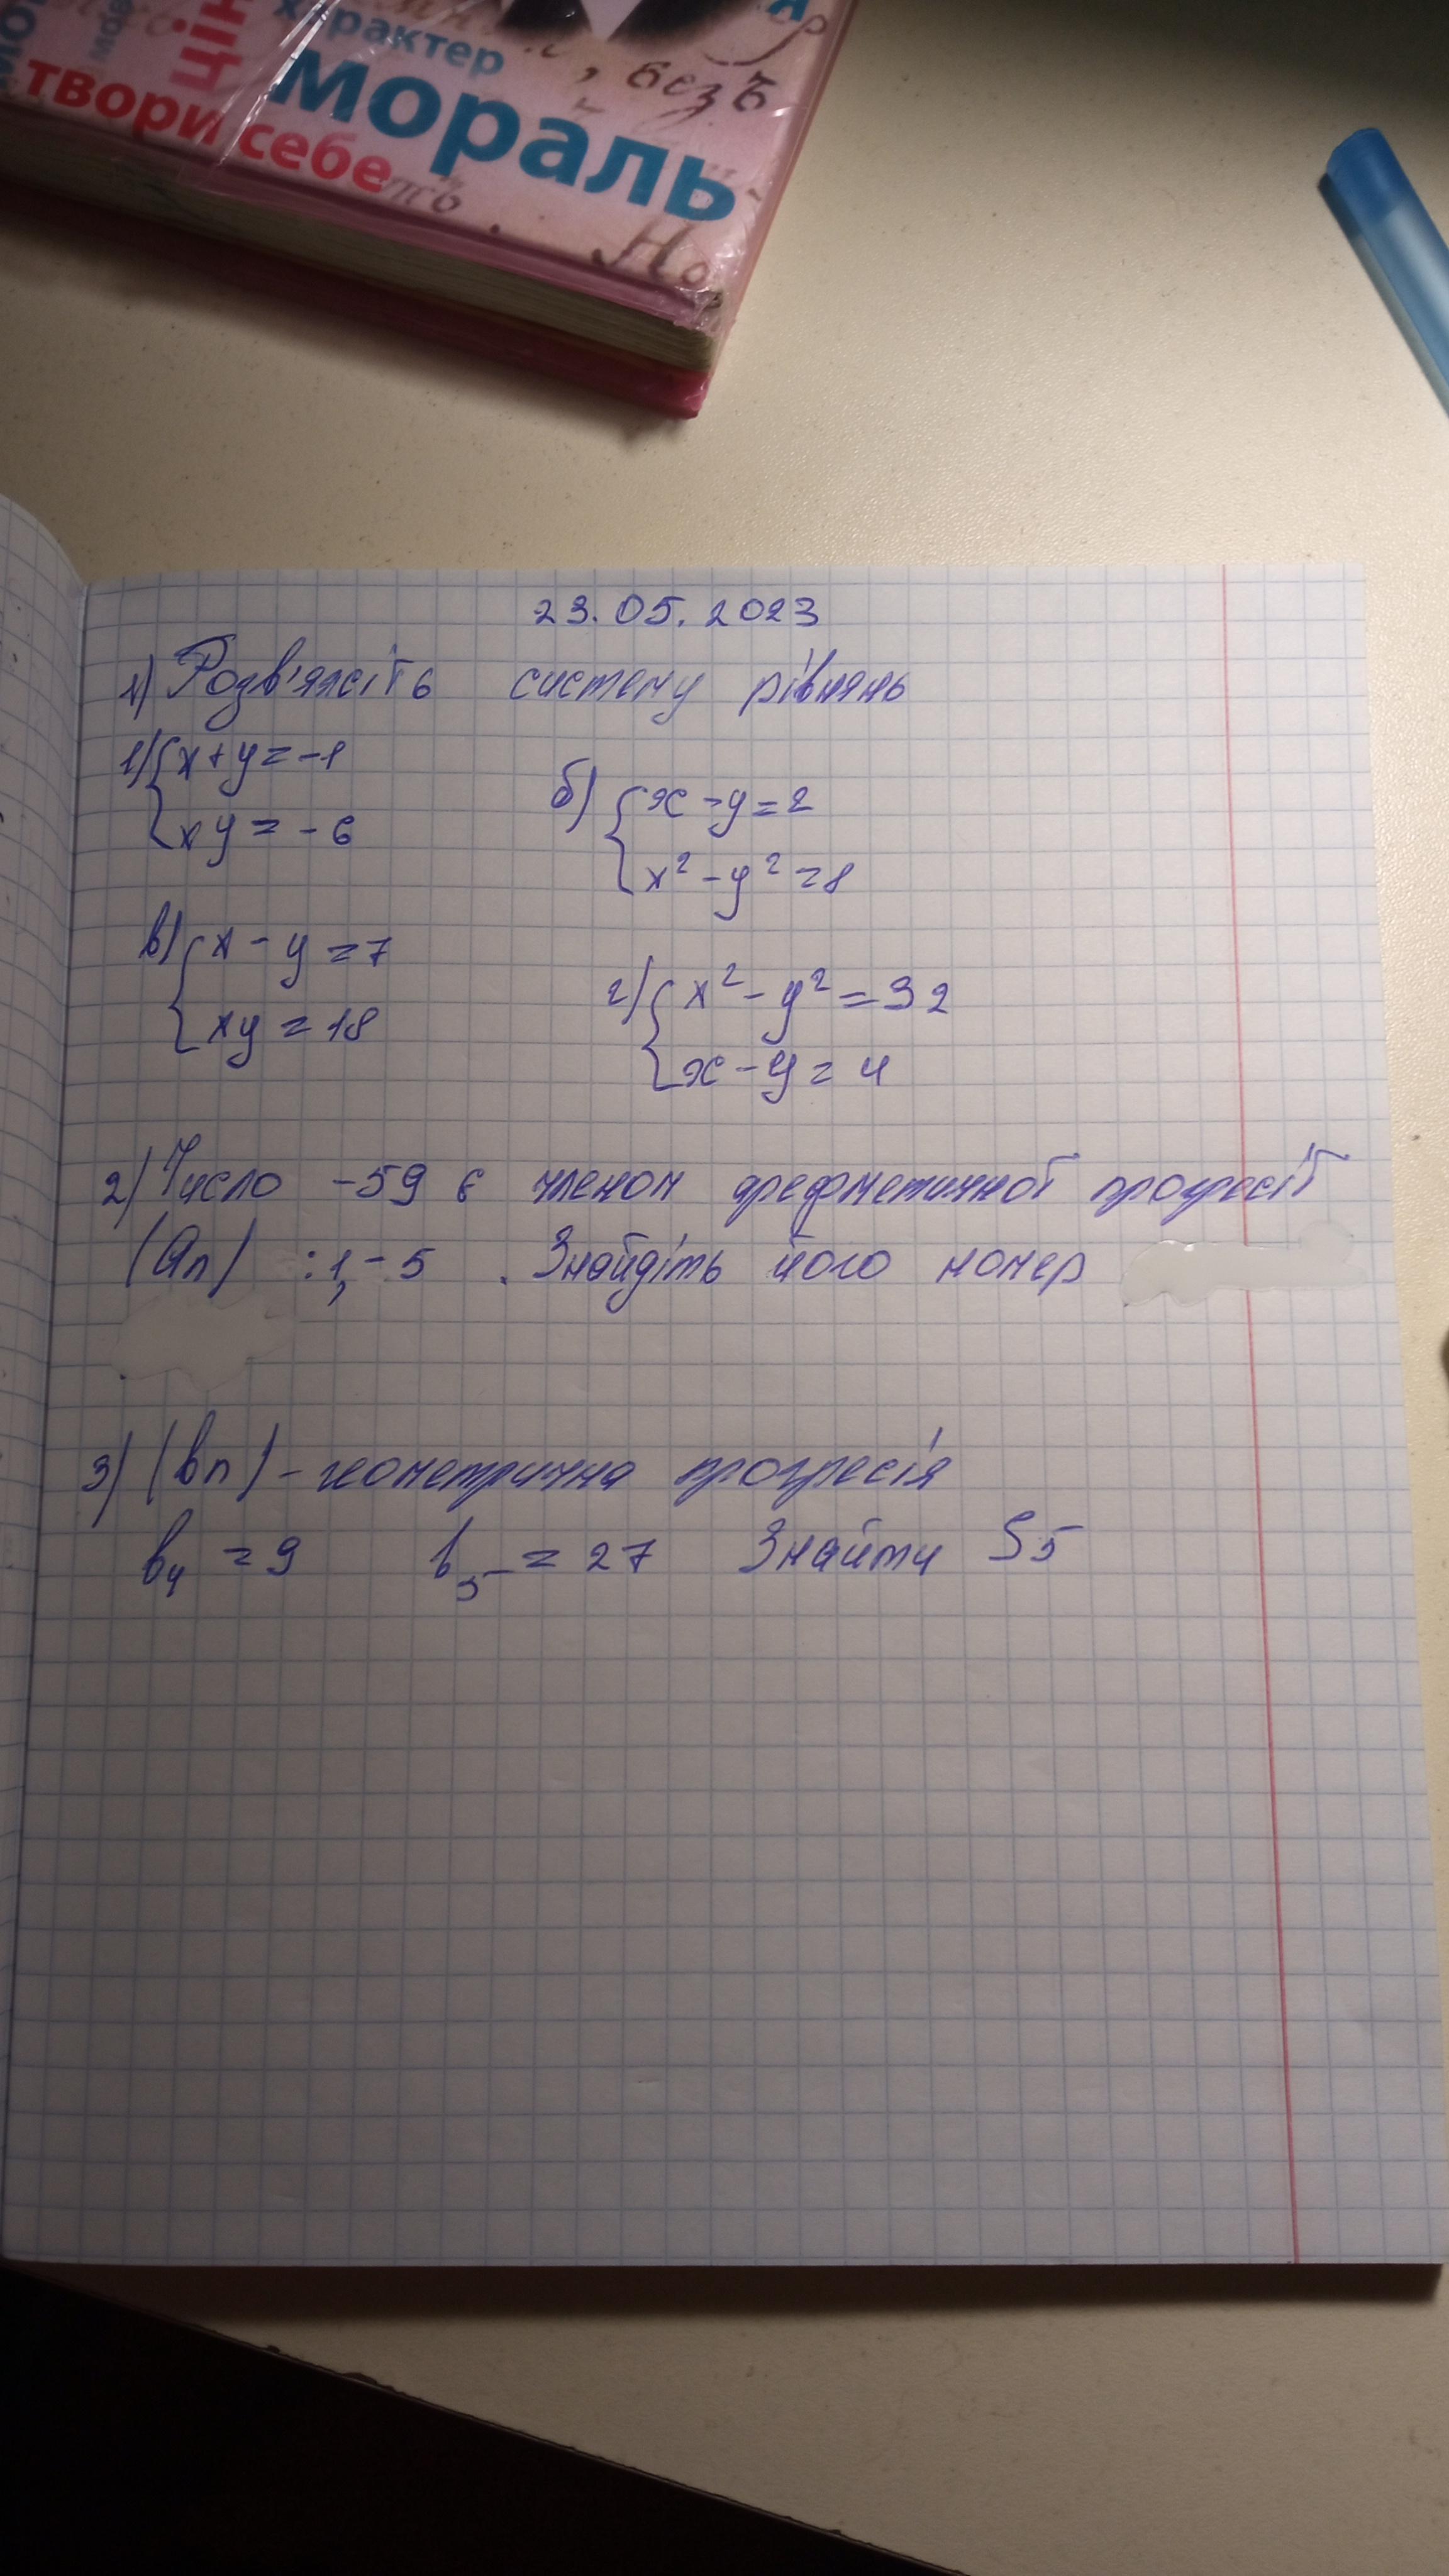 характер
цін
мораль
, безъ
твори себе
Но
23.05.2023
1) Розв'яжіть систему рівнянь
1) { x + y = -1
xy = -6
б) { x - y = 2
x² - y² = 8
в) { x - y = 7
xy = 18
г) { x² - y² = 32
x - y = 4
2) Число -59 є членом арефметичної прогресії
(an) : 1, -5 . Знайдіть його номер
3) (bn) - геометрична прогресія
b₄ = 9 b₅ = 27 Знайти S5